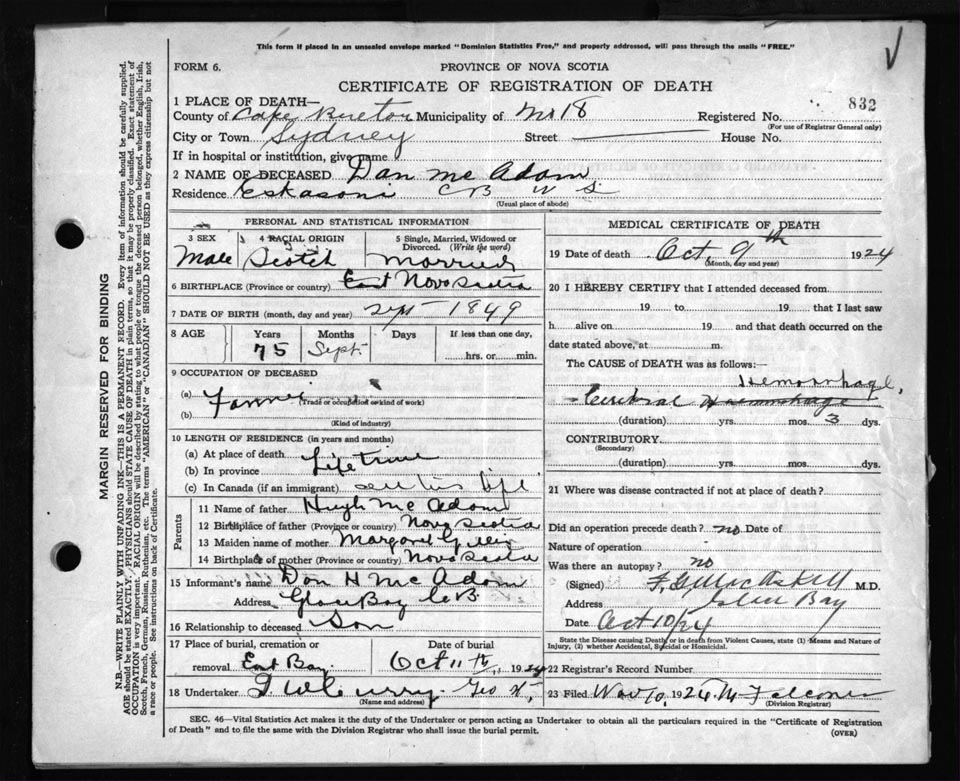 This form if placed in an unsealed envelope marked "Dominion Statistics Free," and properly addressed, will pass through the mails "FREE."
FORM 6.
PROVINCE OF NOVA SCOTIA
CERTIFICATE OF REGISTRATION OF DEATH
832
1 PLACE OF DEATH—
County of Cape Breton Municipality of No 18 Registered No.
(For use of Registrar General only)
City or Town Sydney Street House No.
If in hospital or institution, give name
2 NAME OF DECEASED Dan Mc Adam
Residence Eskasoni C B
(Usual place of abode)
PERSONAL AND STATISTICAL INFORMATION
3 SEX 4 RACIAL ORIGIN 5 Single, Married, Widowed or Divorced. (Write the word)
Male Scotch Married
6 BIRTHPLACE (Province or country) East Nova Scotia
7 DATE OF BIRTH (month, day and year) 1849
8 AGE Years Months Days If less than one day,
75 Sept. hrs. or min.
9 OCCUPATION OF DECEASED
(a) Farmer
(Trade or occupation or kind of work)
(b)
(Kind of industry)
10 LENGTH OF RESIDENCE (in years and months)
(a) At place of death Life time
(b) In province
(c) In Canada (if an immigrant) life
Parents
11 Name of father Hugh Mc Adam
12 Birthplace of father (Province or country) Nova Scotia
13 Maiden name of mother Margaret Gillis
14 Birthplace of mother (Province or country) Nova Scotia
15 Informant's name Dan H Mc Adam
Address Glace Bay C B
16 Relationship to deceased Son
17 Place of burial, cremation or removal East Bay
Date of burial
Oct 11th, 1924
18 Undertaker
(Name and address)
MEDICAL CERTIFICATE OF DEATH
19 Date of death Oct. 9th 1924
(Month, day and year)
20 I HEREBY CERTIFY that I attended deceased from
19 to 19 that I last saw
h alive on 19 and that death occurred on
date stated above, at m.
The CAUSE OF DEATH was as follows:
Hemorrhage,
Cerebral Haemorrhage
(duration) yrs. mos. 3 dys.
CONTRIBUTORY
(Secondary)
(duration) yrs. mos. dys.
21 Where was disease contracted if not at place of death?
Did an operation precede death? no Date of
Nature of operation
Was there an autopsy? no
(Signed) MacAskill M.D.
Address Glace Bay
Date Oct 10/24
State the Disease causing Death, or in death from Violent Causes, state (1) Means and Nature of Injury, (2) whether Accidental, Suicidal or Homicidal.
22 Registrar's Record Number
23 Filed Nov 10, 1924 Falconer
(Division Registrar)
SEC. 46—Vital Statistics Act makes it the duty of the Undertaker or person acting as Undertaker to obtain all the particulars required in the "Certificate of Registration
of Death" and to file the same with the Division Registrar who shall issue the burial permit.
(OVER)
MARGIN RESERVED FOR BINDING
N.B.—WRITE PLAINLY WITH UNFADING INK—THIS IS A PERMANENT RECORD. Every item of information should be carefully supplied.
AGE should be stated EXACTLY. PHYSICIANS should STATE CAUSE OF DEATH in plain terms, so that it may be properly classified. Exact statement of
OCCUPATION is very important. RACIAL ORIGIN will be described by stating to what people or tongue the deceased person belonged, whether English, Irish,
Scotch, French, German, Russian, Ruthenian, etc. The terms "AMERICAN" or "CANADIAN" SHOULD NOT BE USED as they express citizenship but not
a race or people. See instructions on back of Certificate.